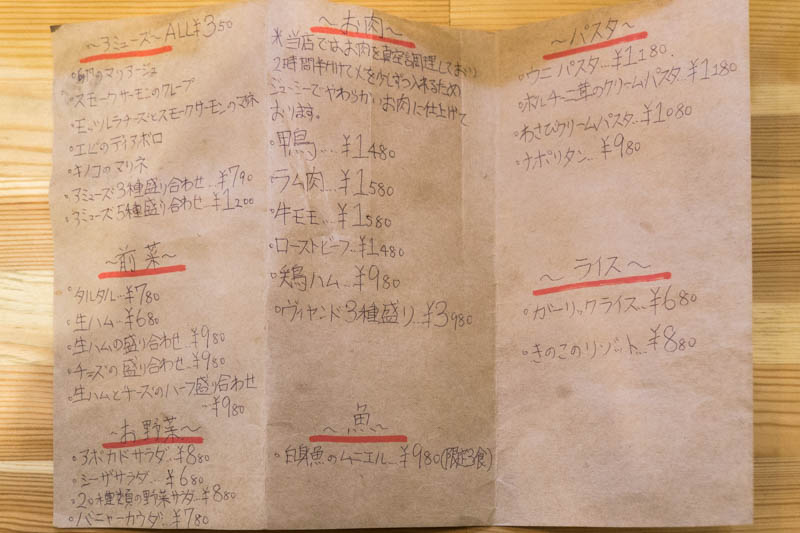 ～アミューズ～ ALL¥350
のマリアージュ
・スモークサーモンのクレープ
・モッツァレラチーズとスモークサーモンの
・エビのディアボロ
・キノコのマリネ
・アミューズ3種盛り合わせ...¥790
・アミューズ5種盛り合わせ...¥1200
～前菜～
・タルタル...¥780
・生ハム...¥680
・生ハムの盛り合わせ...¥980
・チーズの盛り合わせ...¥980
・生ハムとチーズのハーフ盛り合わせ
...¥980
～お野菜～
・アボカドサラダ...¥880
・シーザサラダ...¥680
・20種類の野菜サラダ...¥880
・バーニャーカウダ...¥780
～お肉～
※当店ではお肉を真空調理しており
2時間半かけて火を少しずつ入れるため
ジューシーでやわらかいお肉に仕上げて
おります。
・鴨...¥1480
・ラム肉...¥1580
・牛モモ...¥1580
・ローストビーフ...¥1480
・鶏ハム...¥980
・ヴィヤンド3種盛り...¥3980
～魚～
・白身魚のムニエル...¥980(限定3食)
～パスタ～
・ウニパスタ...¥1180
・ポルチーニ茸のクリームパスタ...¥1180
・わさびクリームパスタ...¥1080
・ナポリタン...¥980
～ライス～
・ガーリックライス...¥680
・きのこのリゾット...¥880